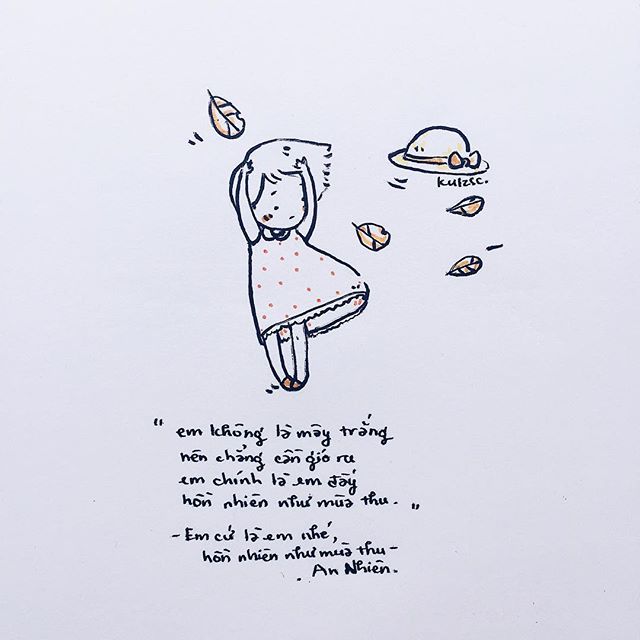 kulzsc.
"em không là mây trắng
nên chẳng cần gió ru
em chính là em đấy
hồn nhiên như mùa thu. "
- Em cứ là em nhé,
hồn nhiên như mùa thu -
. An Nhiên.